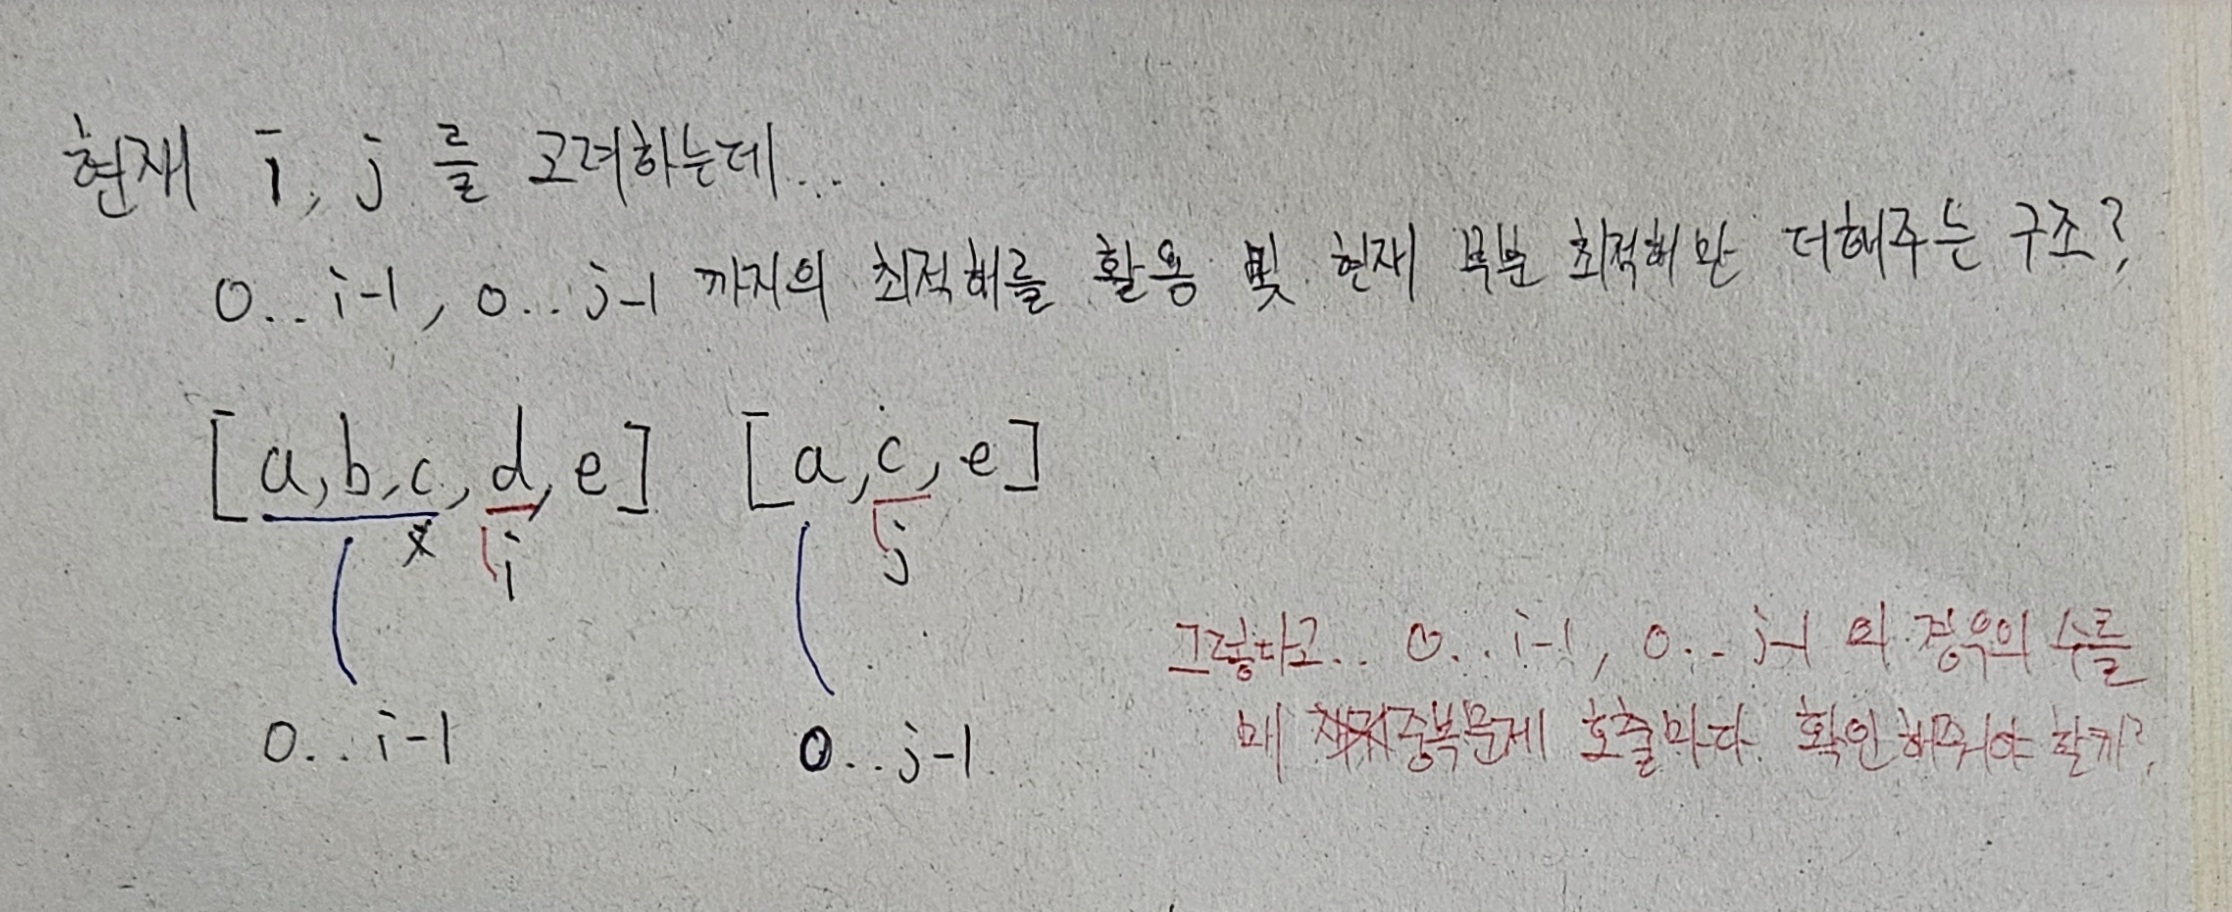 현재 i, j 를 고려하는데...
0..i-1, 0..j-1 까지의 최적해를 활용 및 현재 부분 최적해만 더해주는 구조?
[a,b,c,d,e] [a,c,e]
x i j
0..i-1 0..j-1
그렇다고.. 0..i-1, 0..j-1 의 경우의 수를
매 중복문제 호출마다 확인해줘야 할까?